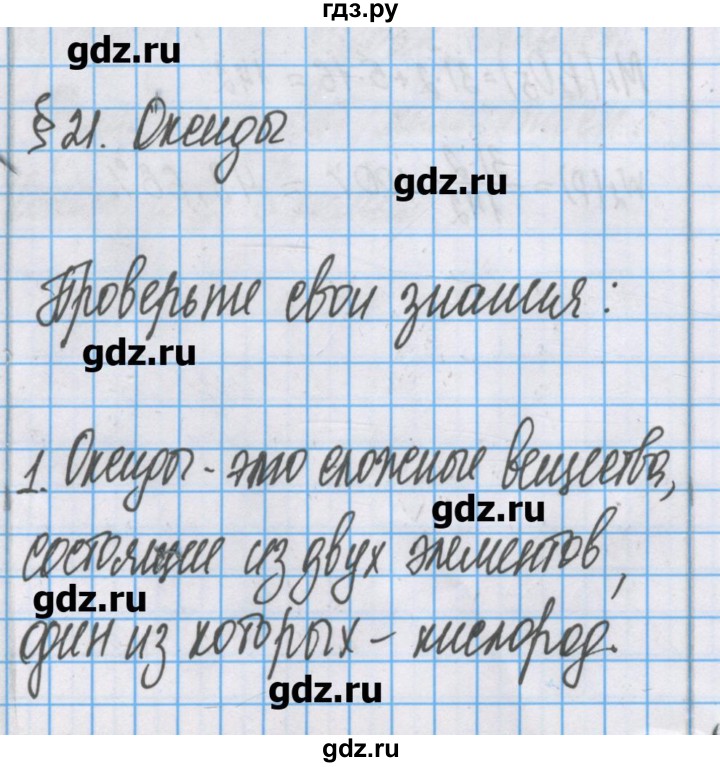 гдз.ру
gdz.ru
§ 21. Оксиды
gdz.ru
Проверьте свои знания:
gdz.ru
1. Оксиды - это сложные вещества,
gdz.ru
состоящие из двух элементов,
gdz.ru
один из которых - кислород.
gdz.ru
gdz.ru